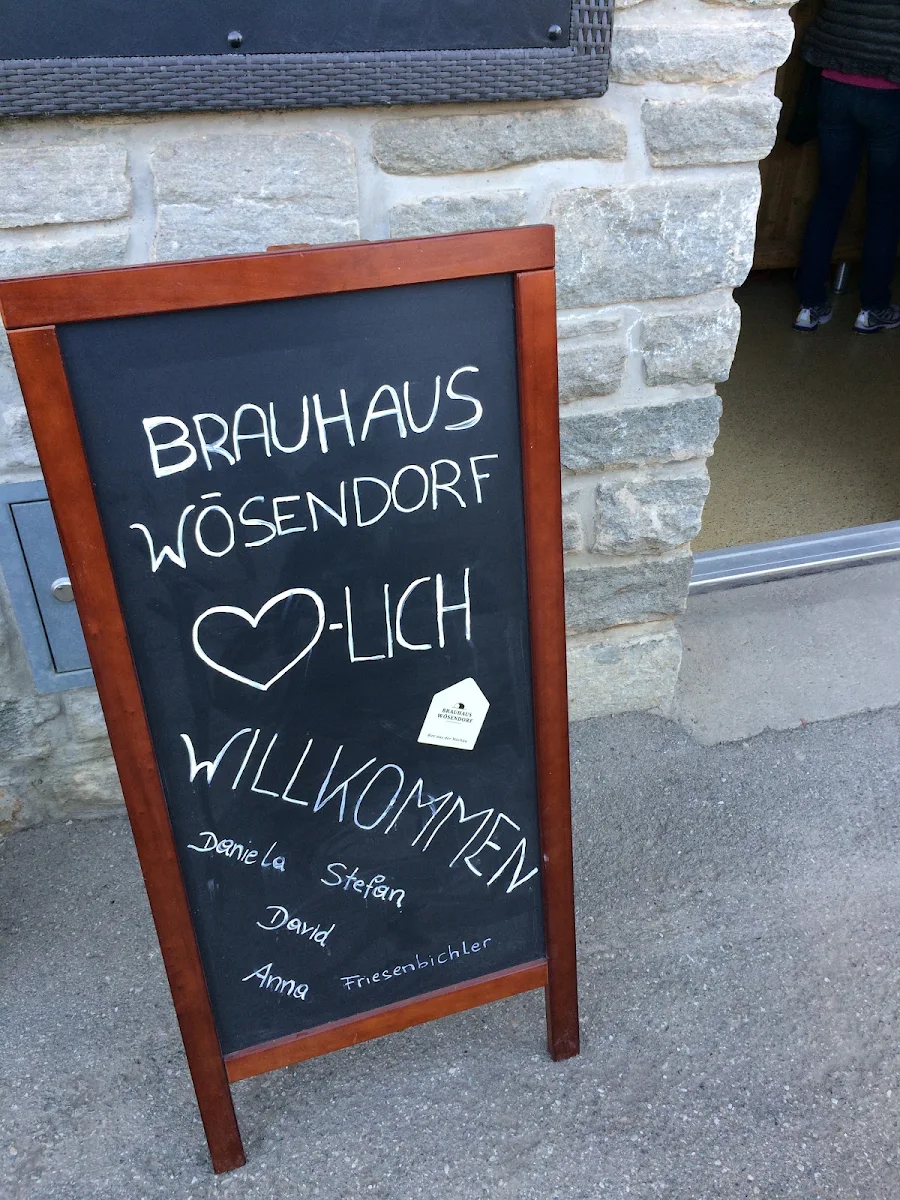 BRAUHAUS
WÖSENDORF
♡-LICH
BRAUHAUS
WÖSENDORF
WILLKOMMEN
Daniela Stefan
David
Anna Friesenbichler